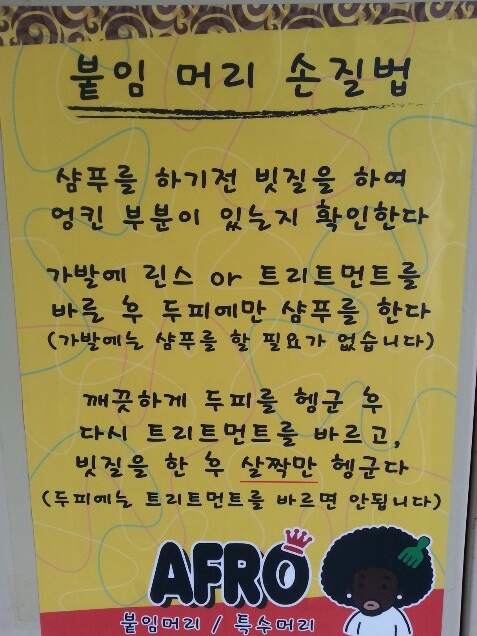 붙임 머리 손질법
샴푸를 하기전 빗질을 하여
엉킨 부분이 있는지 확인한다
가발에 린스 or 트리트먼트를
바른 후 두피에만 샴푸를 한다
(가발에는 샴푸를 할 필요가 없습니다)
깨끗하게 두피를 헹군 후
다시 트리트먼트를 바르고,
빗질을 한 후 살짝만 헹군다
(두피에는 트리트먼트를 바르면 안됩니다)
AFRO
붙임머리 / 특수머리